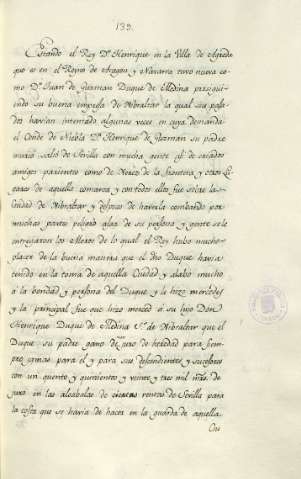 139.
Estando el Rey Dn. Henrique en la Villa de Agreda
que es en el Reyno de Aragon y Navarra tuvo nueva co-
mo Dn. Juan de Guzman Duque de Medina prosigui-
endo su buena empresa de Gibraltar la qual sus pasa-
dos havian intentado algunas veces en cuya demanda
el Conde de Niebla Dn. Henrique de Guzman su padre
murió salió de Sevilla con mucha gente asi de criados
amigos parientes como de Xerez de la frontera y otros Lu-
gares de aquella comarca y con todos ellos fue sobre la
Ciudad de Gibraltar y despues de haverla combatido por
muchas partes peligro algo de su persona y gente se le
entregaron los Moros de lo qual el Rey hubo mucho
placer de la buena manera que el dho Duque havia
tenido en la toma de aquella Ciudad y alabo mucho
a la bondad y persona del Duque y le hizo mercedes
y la principal fue que hizo merced á su hijo Don
Henrique Duque de Medina Sr. de Gibraltar que el
Duque su padre gano de juro de heredad para siem-
pre jamas para el y para sus descendientes y sucesores
con un quento y quinientos y veinte y tres mil mrs. de
juro en las alcabalas de ciertas rentas de Sevilla para
la costa que se havia de hacer en la guarda de aquella